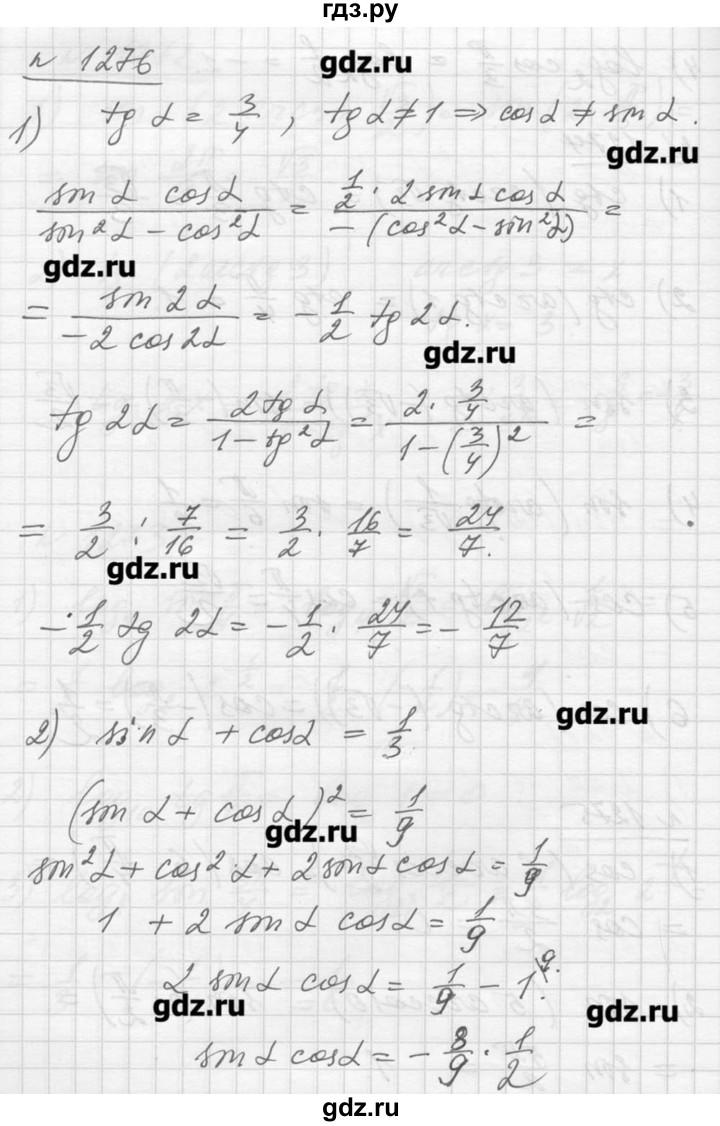 гдз.ру
n 1276
gdz.ru
1) tg α = 3/4 , tg α ≠ 1 ⇒ cos α ≠ sin α .
gdz.ru
(sin α cos α)/(sin²α − cos²α) = (1/2 · 2 sin α cos α)/(−(cos²α − sin²α)) =
gdz.ru
= (sin 2α)/(−2 cos 2α) = −1/2 tg 2α.
gdz.ru
tg 2α = (2 tg α)/(1 − tg²α) = (2 · 3/4)/(1 − (3/4)²) =
= 3/2 : 7/16 = 3/2 · 16/7 = 24/7.
gdz.ru
− 1/2 tg 2α = − 1/2 · 24/7 = − 12/7
gdz.ru
2) sin α + cos α = 1/3
(sin α + cos α)² = 1/9
gdz.ru
sin²α + cos²α + 2 sin α cos α = 1/9
1 + 2 sin α cos α = 1/9
2 sin α cos α = 1/9 − 1\9.
gdz.ru
gdz.ru
sin α cos α = − 8/9 · 1/2
gdz.ru